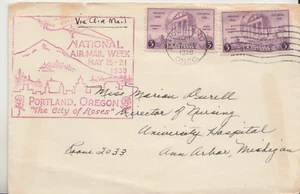 Via Air Mail
NATIONAL
AIR MAIL WEEK
MAY 15-21
1938
PORTLAND, OREGON
"The City of Roses"
Miss Marian Durrell
Director of Nursing
University Hospital
Ann Arbor, Michigan
Room 2033